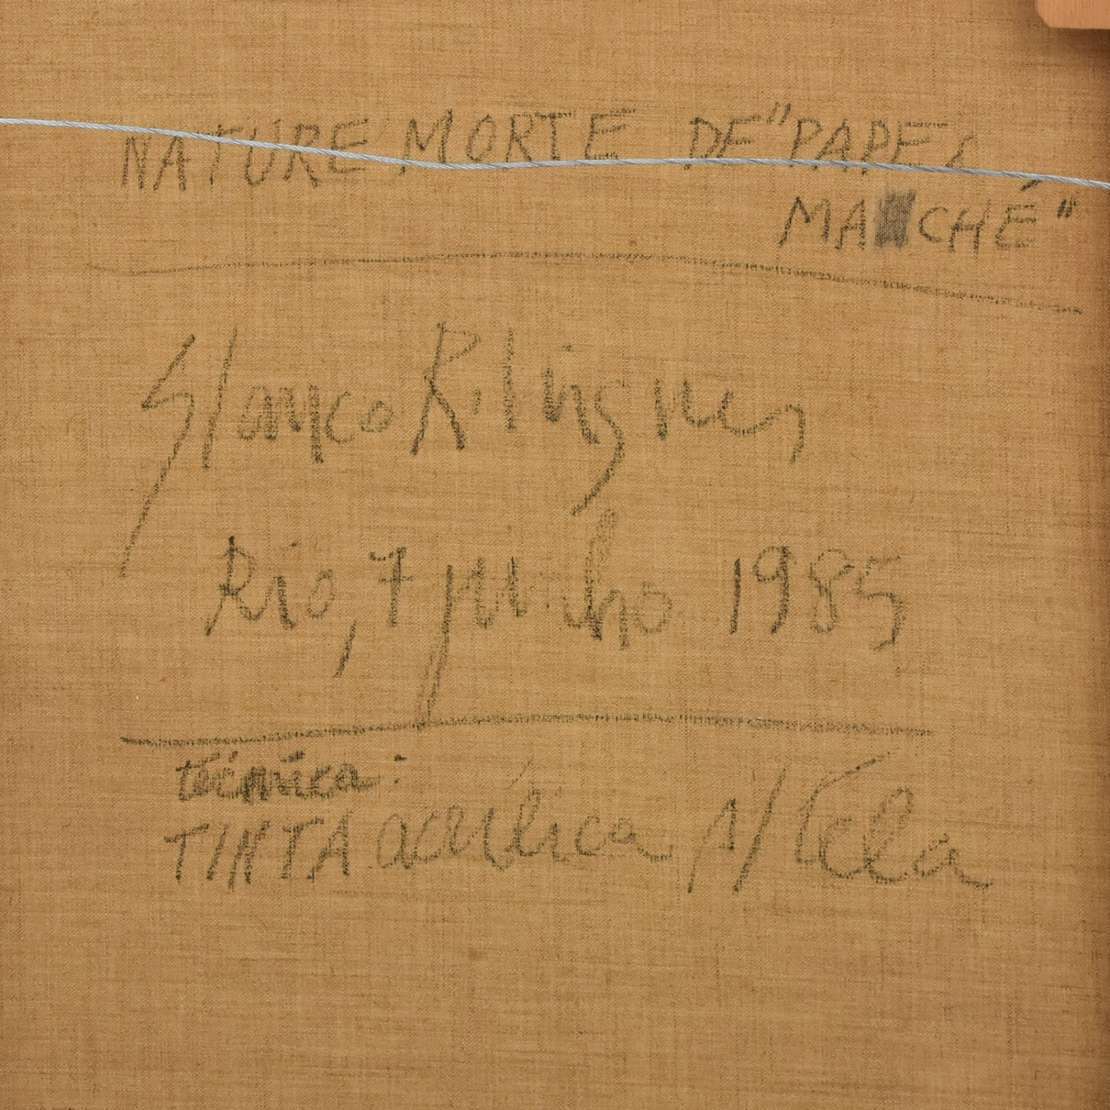 NATURE MORTE DE "PAPER
MACHÉ"
Glauco Rodrigues
Rio, 7 junho 1985
técnica:
TINTA acrílica s/tela